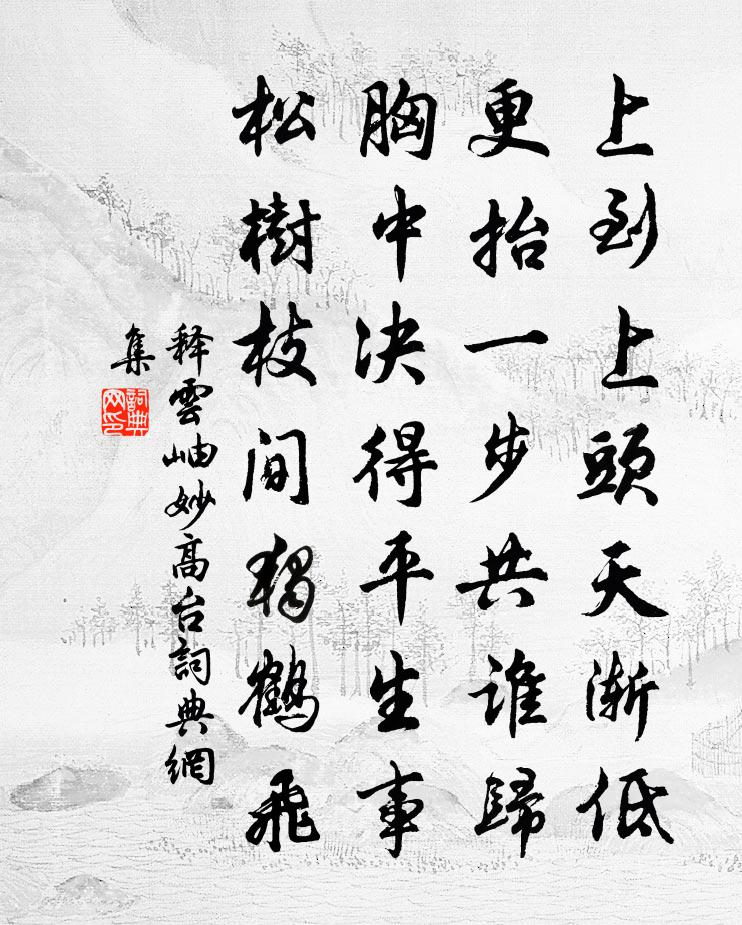 上到上頭天漸低
更抬一步共誰歸
胸中決得平生事
松樹枝間獨鶴飛
释雲岫妙高台詞典網
集
詞典
网印